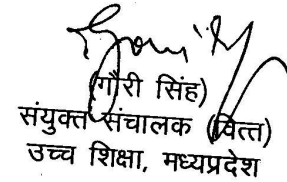 (गौरी सिंह)
संयुक्त संचालक (वित्त)
उच्च शिक्षा, मध्यप्रदेश